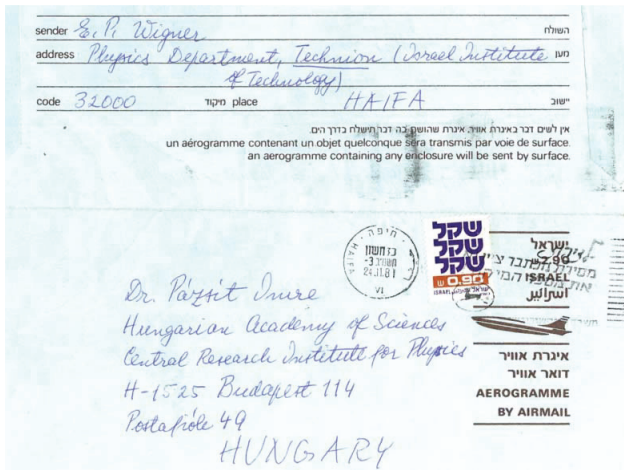 sender E. P. Wigner השולח
address Physics Department, Technion (Israel Institute מען
of Technology)
code 32000 מיקוד place HAIFA יישוב
אין לשים דבר באיגרת אוויר. איגרת שהושם בה דבר תישלח בדרך הים.
un aérogramme contenant un objet quelconque sera transmis par voie de surface.
an aerogramme containing any enclosure will be sent by surface.
חיפה
HAIFA
כז חשון
24.11.81
VI
שקל
שקל
שקל
0.90
ISRAEL
ישראל
2.90
ISRAEL
اسرائيل
Dr. Pázsit Imre
Hungarian Academy of Sciences
Central Research Institute for Physics
H-1525 Budapest 114
Postafióle 49
HUNGARY
איגרת אוויר
דואר אוויר
AEROGRAMME
BY AIRMAIL